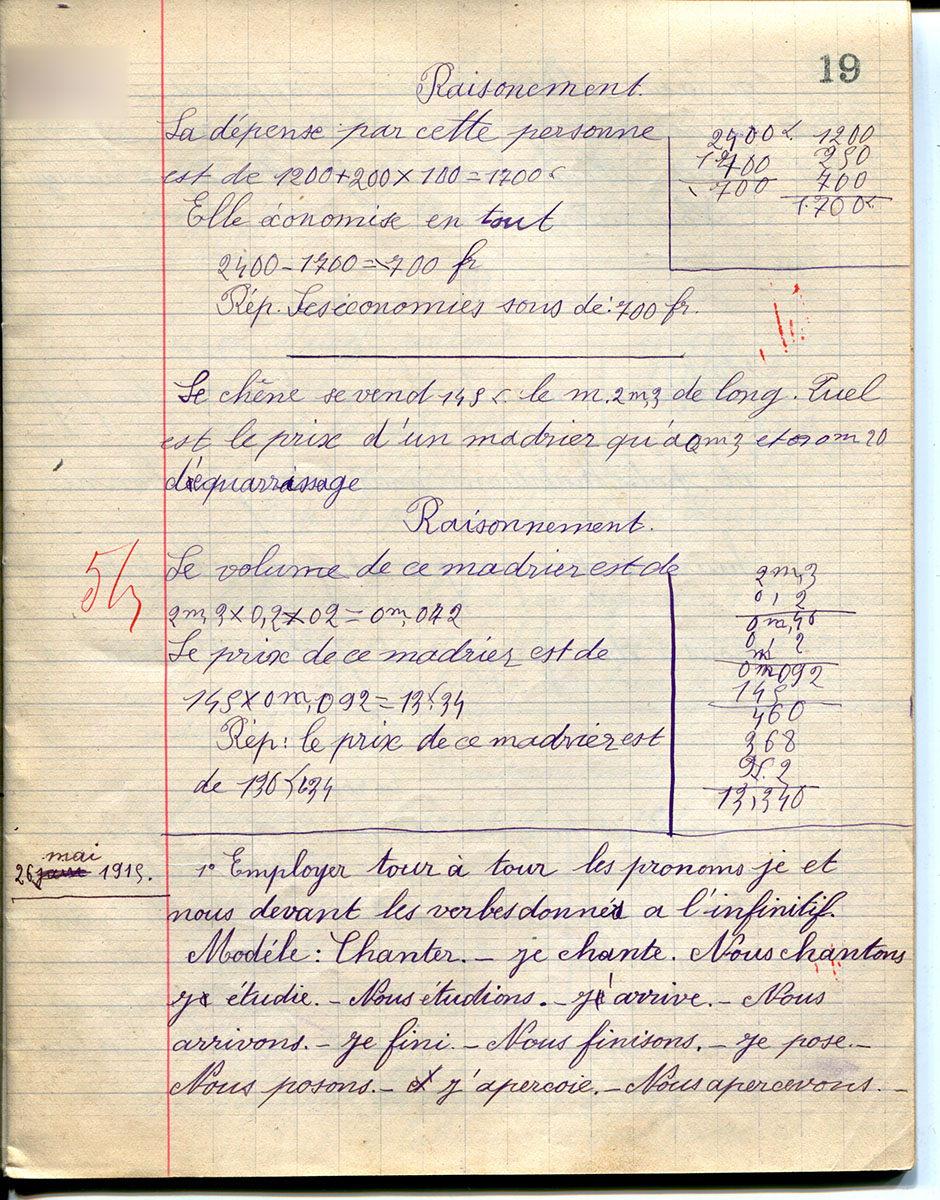 19
Raisonement.
La dépense par cette personne
est de 1200+200×100=1700
Elle éonomise en tout
2400-1700=700 fr
Rép. Ses économies sons de: 700 fr.
2400 1200
1700
700 700
1.700
Le chêne se vend 145 le m. 2m,3 de long. Quel
est le prix d'un madrier qu'a 2m3 et 0m20
d'équarrissage
Raisonnement.
Le volume de ce madrier est de
2m,3×0,2×02=0m,092
Le prix de ce madrier est de
145×0m,092=13,34
Rép: le prix de ce madrier est
de 34
2m,3
0,2
0m,46
0,2
0m092
145
460
368
92
13,340
mai
26 1915.
1° Employer tour à tour les pronoms je et
nous devant les verbes donnés a l'infinitif.
Modéle: Chanter. – je chante. Nous chantons
j' étudie. – Nous étudions. – j'arrive. – Nous
arrivons. – je fini. – Nous finisons. – je pose. –
Nous posons. – j'apercoie. – Nous apercevons. –